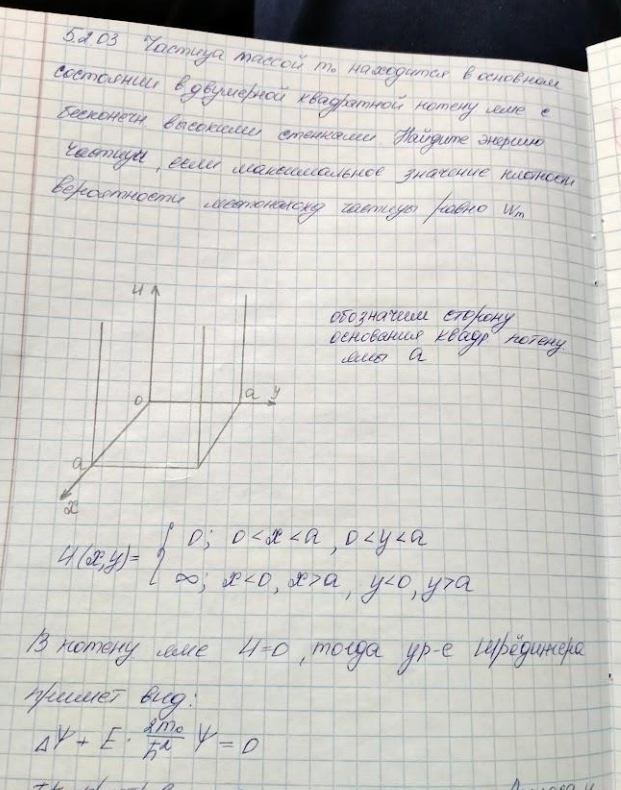 5.203 Частица массой m₀ находится в основном
состоянии в двумерной квадратной потенц яме с
бесконечн высокими стенками. Найдите энергию
частицы, если максимальное значение плотности
вероятности местонахожд частицы равно Wm
U
обозначим сторону
основания квадр потенц
ямы a
0 a y
a
x
U(x,y)= { 0; 0<x<a, 0<y<a
∞; x<0, x>a, y<0, y>a
В потенц яме U=0, тогда ур-е Шрёдингера
примет вид:
ΔΨ + E · 2m₀/ħ² Ψ = 0